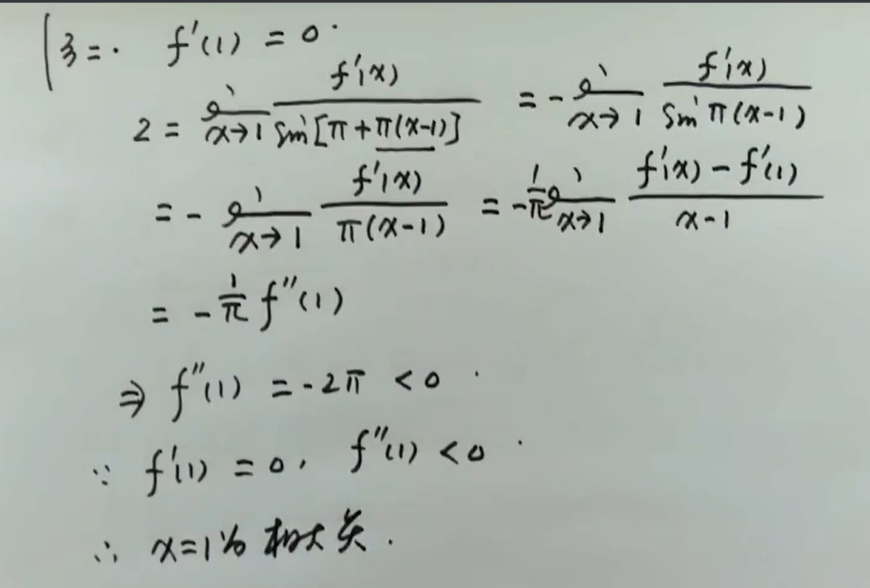 f'(1) = 0.
2 = lim x→1 f'(x) / sin[π + π(x-1)] = - lim x→1 f'(x) / sin π(x-1)
= - lim x→1 f'(x) / π(x-1) = - 1/π lim x→1 (f'(x) - f'(1)) / (x-1)
= - 1/π f''(1)
⇒ f''(1) = -2π < 0.
∵ f'(1) = 0, f''(1) < 0.
∴ x=1为极大点.